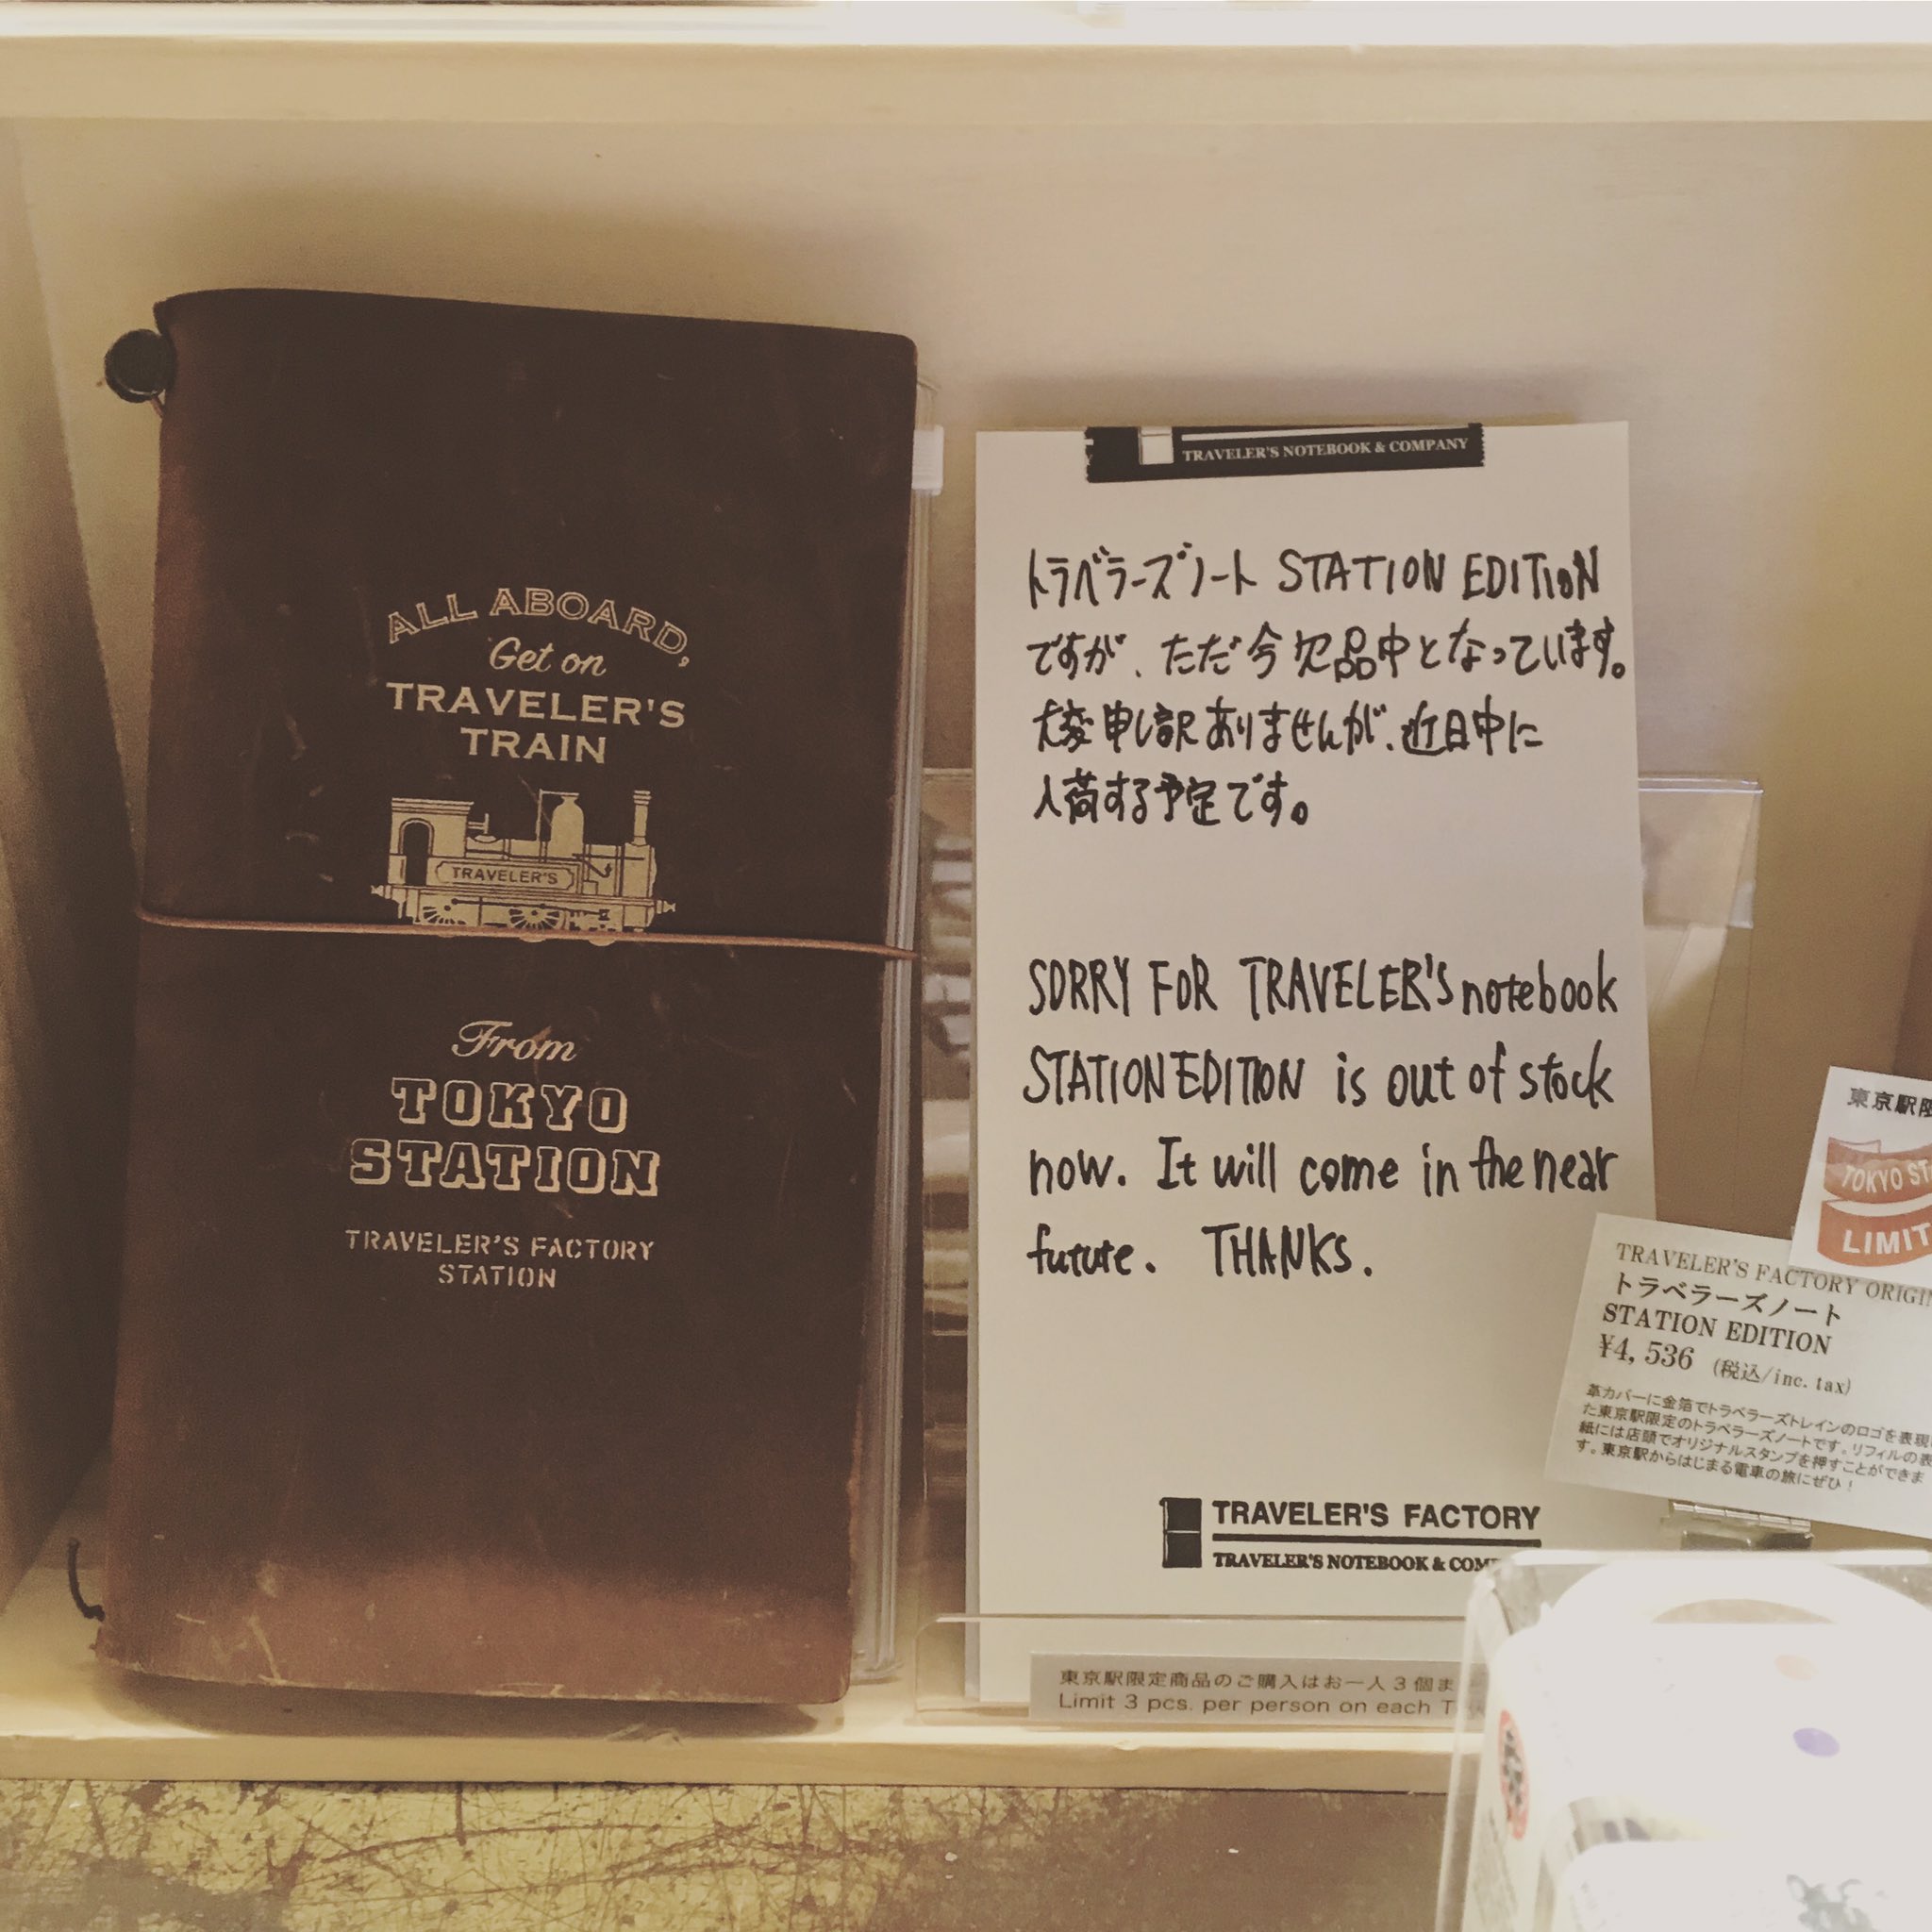 ALL ABOARD,
Get on
TRAVELER'S
TRAIN
TRAVELER'S
From
TOKYO
STATION
TRAVELER'S FACTORY
STATION
TRAVELER'S NOTEBOOK & COMPANY
トラベラーズノート STATION EDITION
ですが、ただ今欠品中となっています。
大変申し訳ありませんが、近日中に
入荷する予定です。
SORRY FOR TRAVELER'S notebook
STATION EDITION is out of stock
now. It will come in the near
future. THANKS.
TRAVELER'S FACTORY
TRAVELER'S NOTEBOOK & COM
東京駅限定商品のご購入はお一人3個ま
Limit 3 pcs. per person on each T
東京駅限
TOKYO ST
LIMIT
TRAVELER'S FACTORY ORIGIN
トラベラーズノート
STATION EDITION
¥4,536 (税込/inc. tax)
革カバーに金箔でトラベラーズトレインのロゴを表現
た東京駅限定のトラベラーズノートです。リフィルの表
紙には店頭でオリジナルスタンプを押すことができま
す。東京駅からはじまる電車の旅にぜひ！